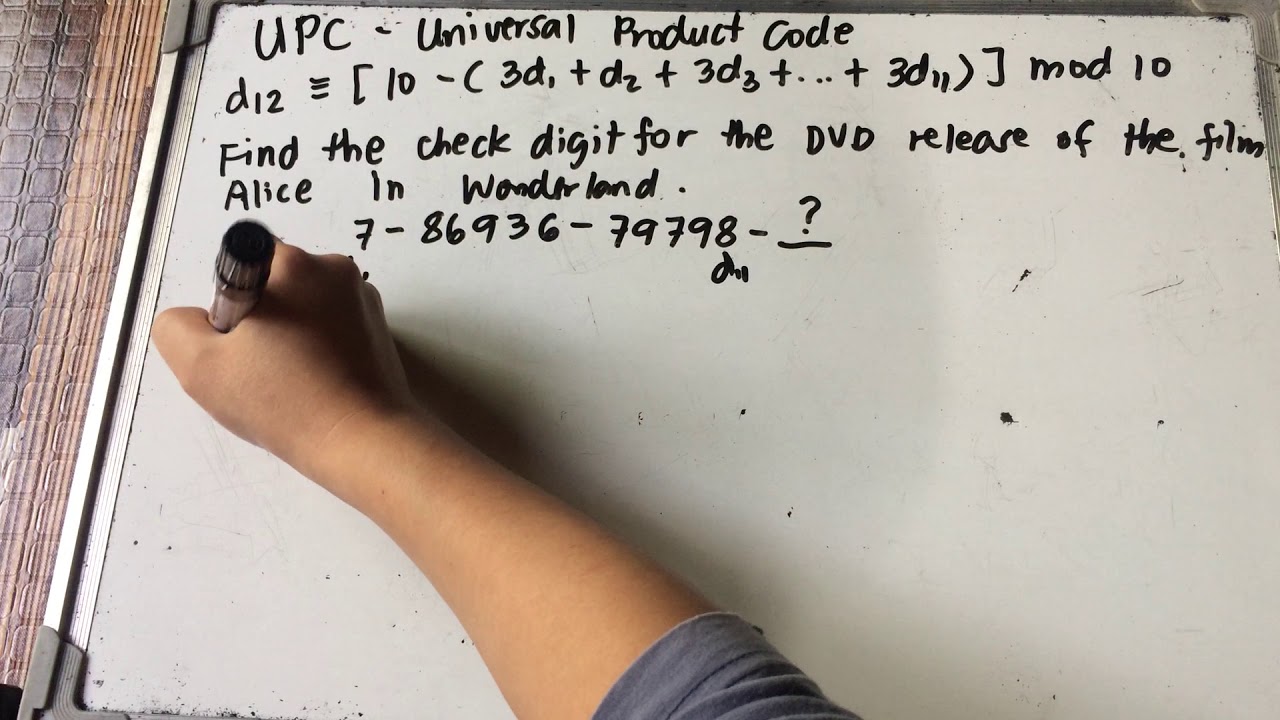 UPC - Universal Product Code
d12 ≡ [ 10 - ( 3d1 + d2 + 3d3 + ... + 3d11 ) ] mod 10
Find the check digit for the DVD release of the film
Alice In Wonderland.
7 - 86936 - 79798 - ?
d11